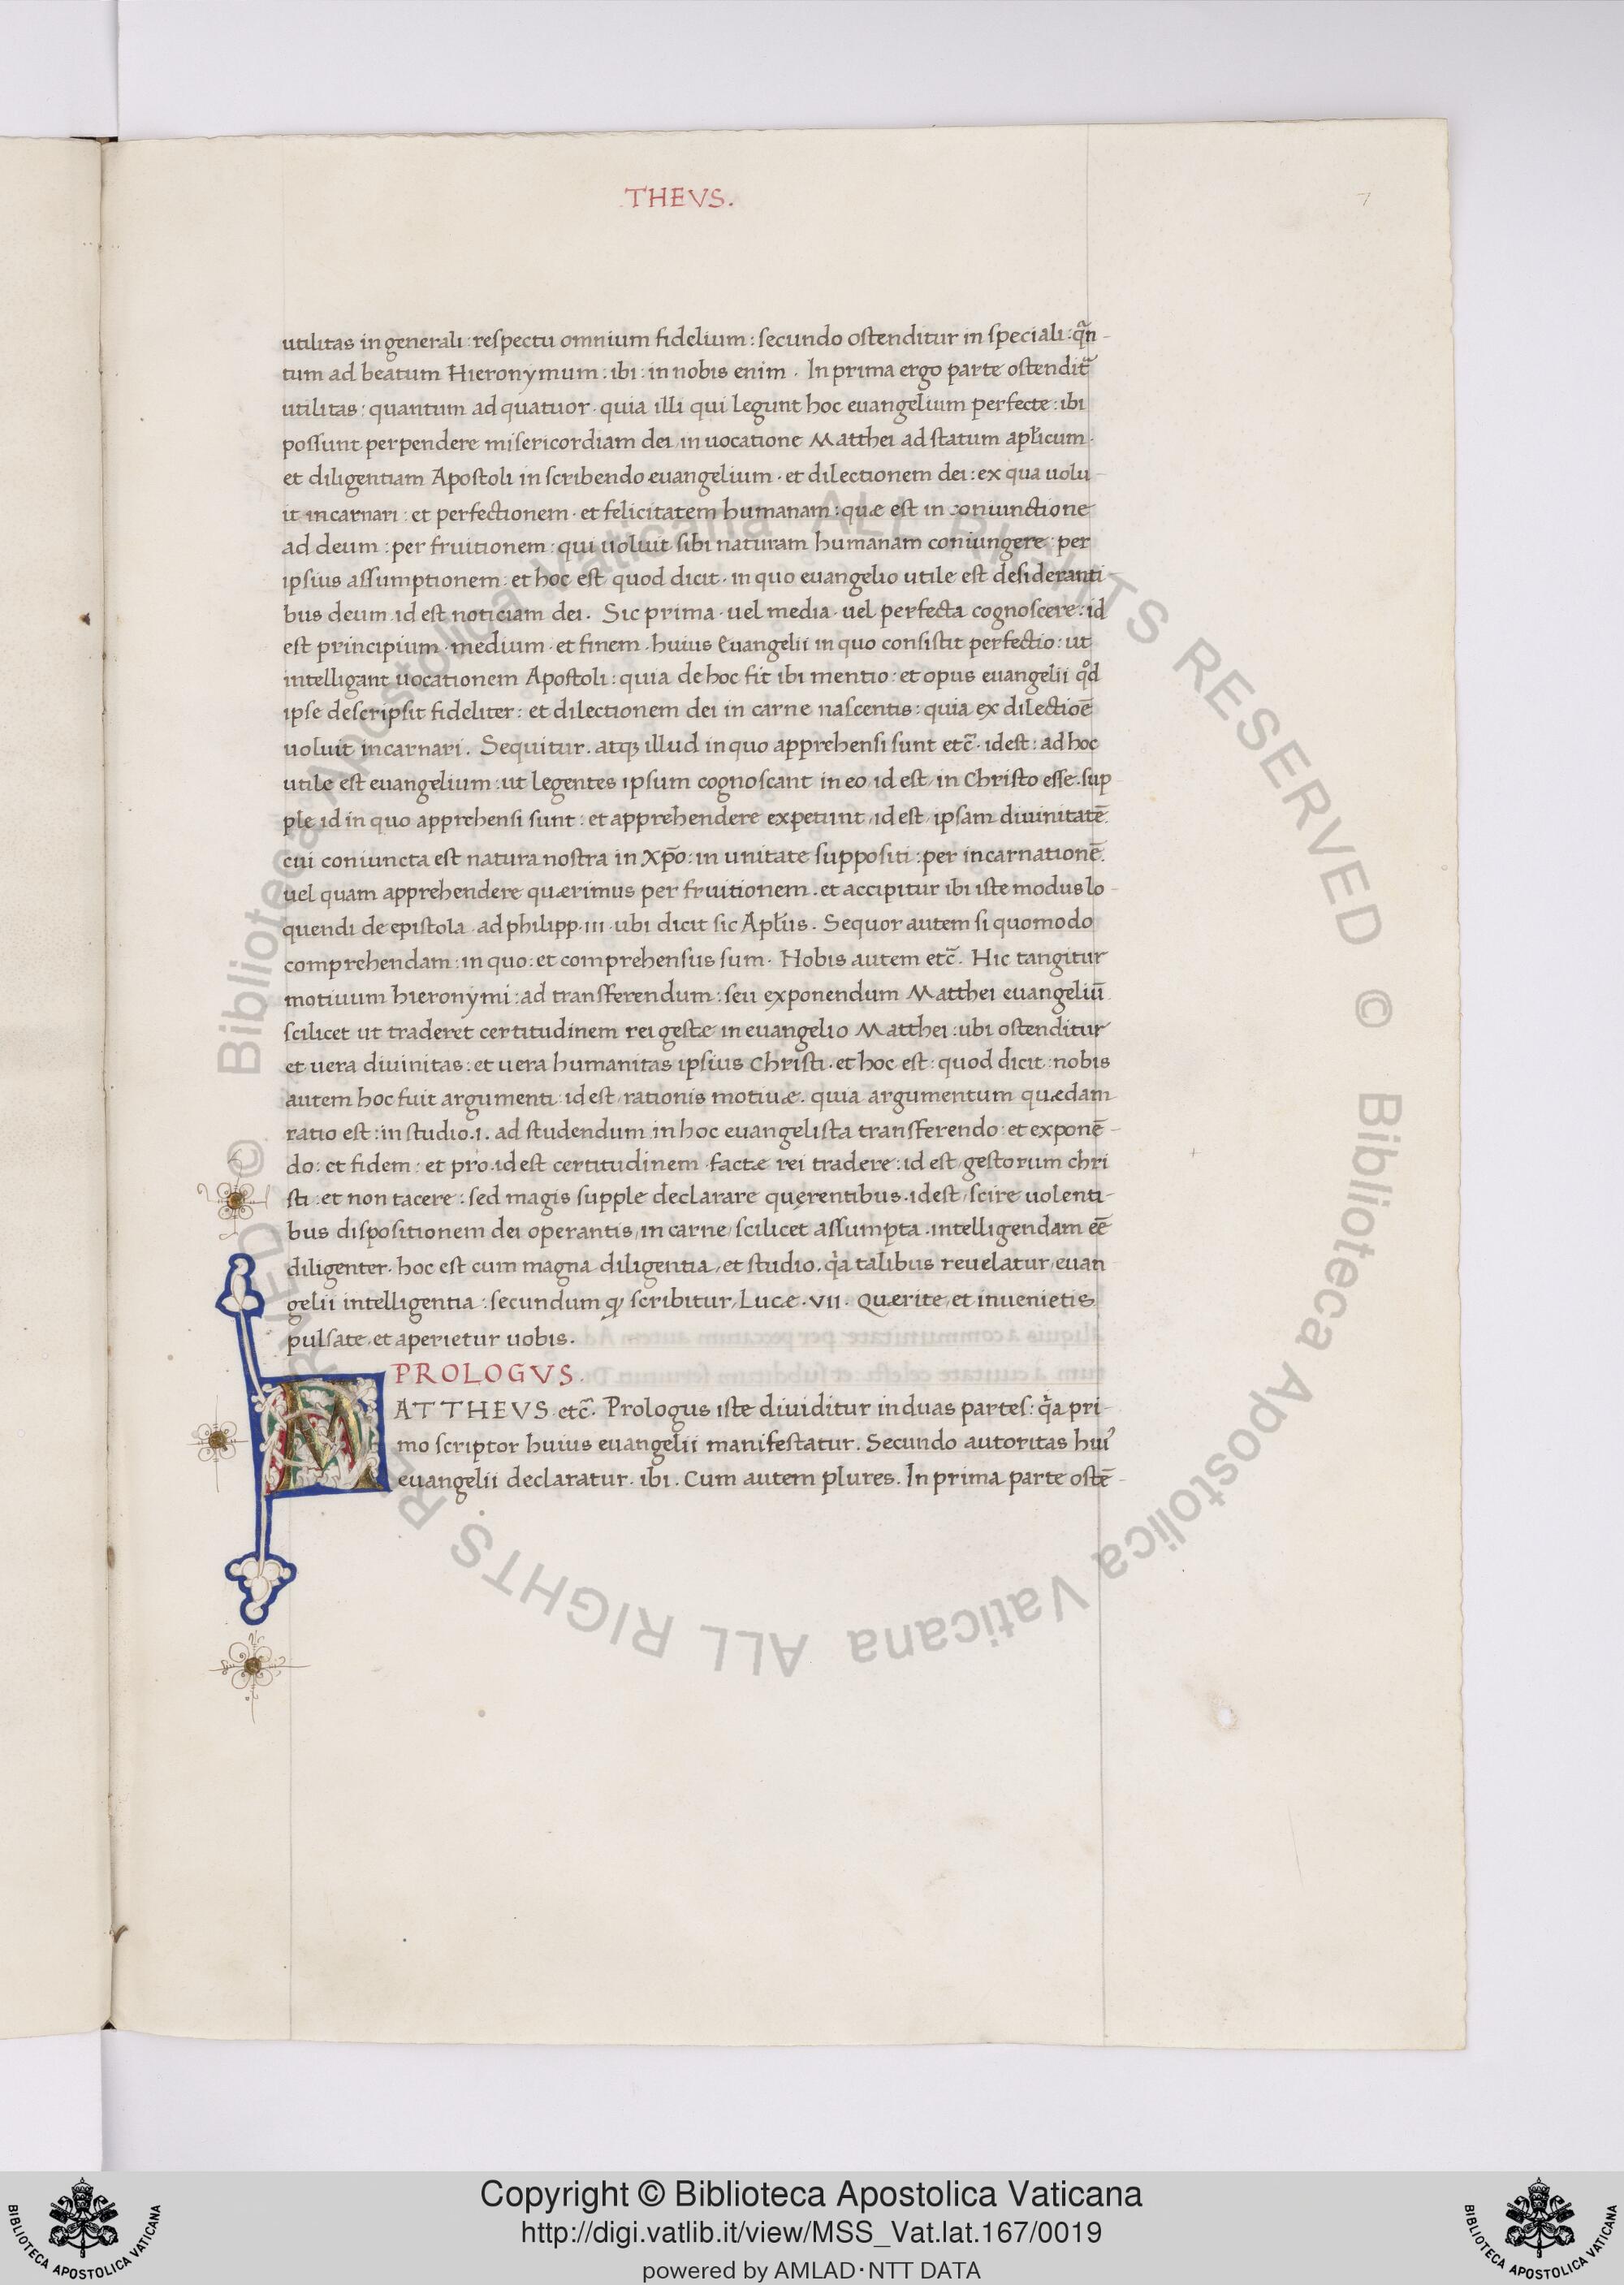 THEVS.
7
utilitas in generali : respectu omnium fidelium : secundo ostenditur in speciali : q̃n-
tum ad beatum Hieronymum : ibi : in nobis enim . In prima ergo parte ostendit᷑
utilitas : quantum ad quatuor · quia illi qui legunt hoc euangelium perfecte : ibi
possunt perpendere misericordiam dei in uocatione Matthei ad statum apl̃icum .
et diligentiam Apostoli in scribendo euangelium · et dilectionem dei : ex qua uolu-
it incarnari : et perfectionem · et felicitatem humanam : quæ est in coniunctione
ad deum : per fruitionem : qui uoluit sibi naturam humanam coniungere : per
ipsius assumptionem : et hoc est quod dicit · in quo euangelio utile est desideranti-
bus deum id est noticiam dei . Sic prima · uel media · uel perfecta cognoscere : id
est principium · medium · et finem · huius Euangelii in quo consistit perfectio : ut
intelligant uocationem Apostoli : quia de hoc fit ibi mentio : et opus euangelii qͦd
ipse descripsit fideliter : et dilectionem dei in carne nascentis : quia ex dilectioē
uoluit incarnari . Sequitur . atqꝫ illud in quo apprehensi sunt etc̃ · id est : ad hoc
utile est euangelium : ut legentes ipsum cognoscant in eo id est in Christo esse . sup
ple id in quo apprehensi sunt : et apprehendere expetunt id est ipsam diuinitatē .
cui coniuncta est natura nostra in Xp̄o : in unitate suppositi : per incarnationē .
uel quam apprehendere quærimus per fruitionem . et accipitur ibi iste modus lo-
quendi de epistola ad philipp . III · ubi dicit sic Apl̃us . Sequor autem si quomodo
comprehendam : in quo : et comprehensus sum · Nobis autem etc̃ . Hic tangitur
motiuum hieronymi : ad transferendum : seu exponendum Matthei euangeliū
scilicet ut traderet certitudinem rei gestæ in euangelio Matthei : ubi ostenditur
et uera diuinitas : et uera humanitas ipsius Christi · et hoc est : quod dicit : nobis
autem hoc fuit argumenti : id est rationis motiuæ . quia argumentum quædam
ratio est : in studio . i . ad studendum in hoc euangelista transferendo : et exponē-
do : et fidem : et pro . id est certitudinem factæ rei tradere : id est gestorum chri
sti : et non tacere : sed magis supple declarare quęrentibus . id est scire uolenti-
bus dispositionem dei operantis in carne scilicet assumpta . intelligendam eē
diligenter . hoc est cum magna diligentia et studio . q̇a talibus reuelatur euan
gelii intelligentia : secundum ꝙ scribitur Lucæ · VII · Quærite et inuenietis
pulsate et aperietur uobis .
PROLOGVS .
MATTHEVS etc̃ . Prologus iste diuiditur in duas partes : q̇a pri-
mo scriptor huius euangelii manifestatur . Secundo autoritas huiꝰ
euangelii declaratur . ibi . Cum autem plures . In prima parte ostē-
© Biblioteca Apostolica Vaticana ALL RIGHTS RESERVED © Biblioteca Apostolica Vaticana ALL RIGHTS RESERVED
Copyright © Biblioteca Apostolica Vaticana
http://digi.vatlib.it/view/MSS_Vat.lat.167/0019
powered by AMLAD·NTT DATA
BIBLIOTECA APOSTOLICA VATICANA
BIBLIOTECA APOSTOLICA VATICANA